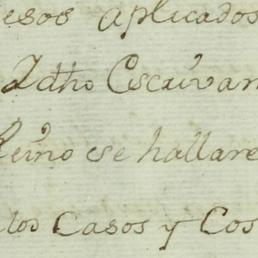 esos aplicados
Adho Escrivan
Reino se hallare
los Casos y Cos